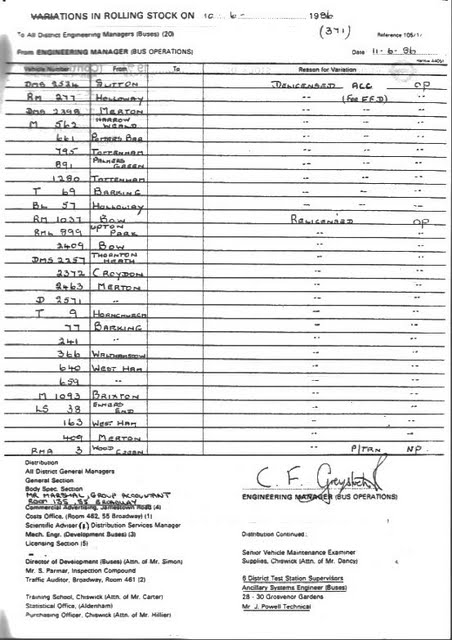 VARIATIONS IN ROLLING STOCK ON 10 - 6 - 1986
(371)
To All District Engineering Managers (Buses) (20) Reference 105/1/
From ENGINEERING MANAGER (BUS OPERATIONS) Date 11-6-86
Vehicle Number From To Reason for Variation
DMS 2524 SUTTON DELICENSED ACC OP
RM 277 HOLLOWAY -- (For F.F.D) --
DMS 2398 MERTON -- -- --
M 562 HARROW WEALD -- -- --
661 POTTERS BAR -- -- --
795 TOTTENHAM -- -- --
891 PALMERS GREEN -- -- --
1280 TOTTENHAM -- -- --
T 69 BARKING -- -- --
BL 57 HOLLOWAY -- -- --
RM 1037 BOW RELICENSED OP
RML 899 UPTON PARK -- --
2409 BOW -- --
DMS 2257 THORNTON HEATH -- --
2372 CROYDON -- --
2463 MERTON -- --
D 2571 -- -- --
T 9 HORNCHURCH -- --
77 BARKING -- --
241 -- -- --
366 WALTHAMSTOW -- --
640 WEST HAM -- --
659 -- -- --
M 1093 BRIXTON -- --
LS 38 -- --
163 WEST HAM -- --
409 MERTON -- --
RMA 3 WOOD GREEN P/TRN NP
Distribution
All District General Managers
General Section
Body Spec. Section
MR MARSHAL, GROUP ACCOUNTANT
ROOM 135, 55 BROADWAY
Commercial Advertising, Jamestown Road (4)
Costs Office, (Room 462, 55 Broadway) (1)
Scientific Adviser (1) Distribution Services Manager
Mech. Engr. (Development Buses) (3)
Licensing Section (5)
Director of Development (Buses) (Attn. of Mr. Simon)
Mr. S. Parmar, Inspection Compound
Traffic Auditor, Broadway, Room 461 (2)
Training School, Chiswick (Attn. of Mr. Carter)
Statistical Office, (Aldenham)
Purchasing Officer, Chiswick (Attn. of Mr. Hillier)
C. F. Greystock
ENGINEERING MANAGER (BUS OPERATIONS)
Distribution Continued:
Senior Vehicle Maintenance Examiner
Supplies, Chiswick (Attn. of Mr. Dancy)
6 District Test Station Supervisors
Ancillary Systems Engineer (Buses)
28 - 30 Grosvenor Gardens
Mr. J. Powell Technical